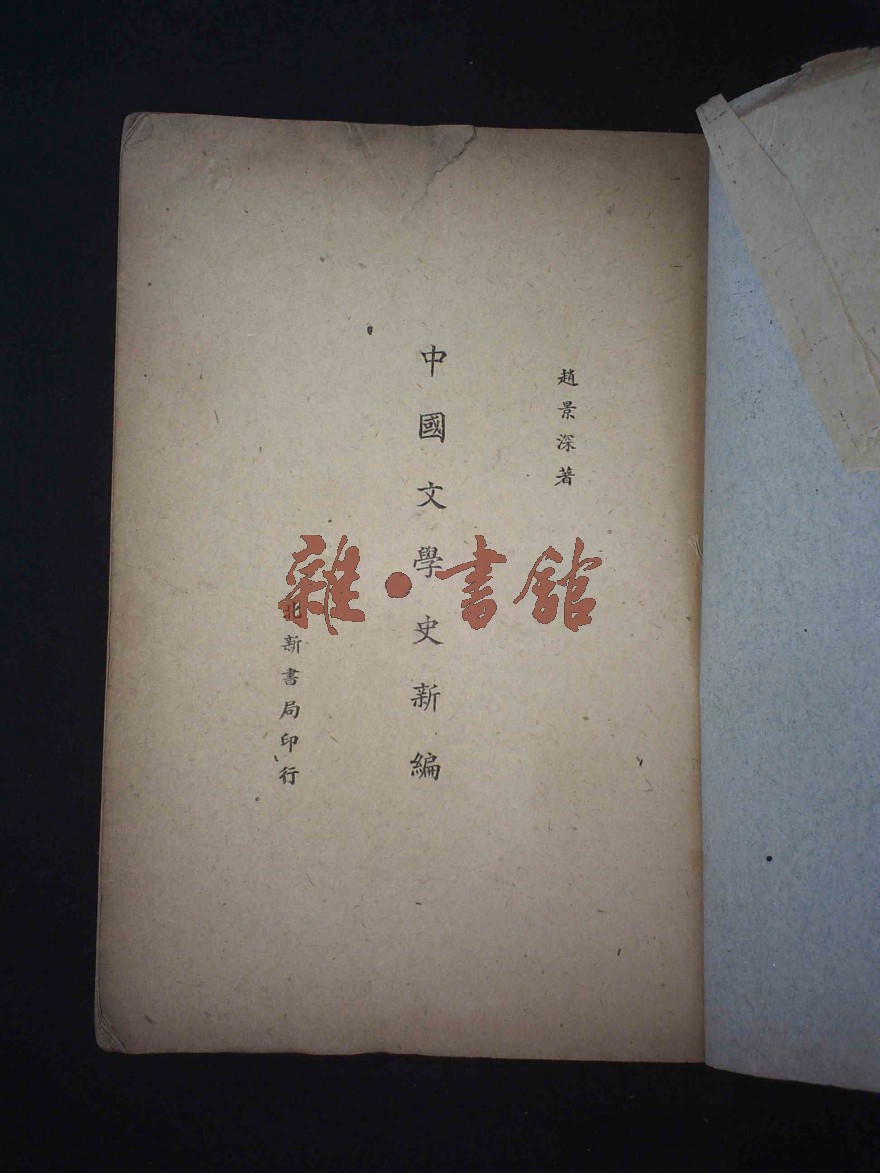 趙景深著
中國文學史新編
北新書局印行
雜·書館